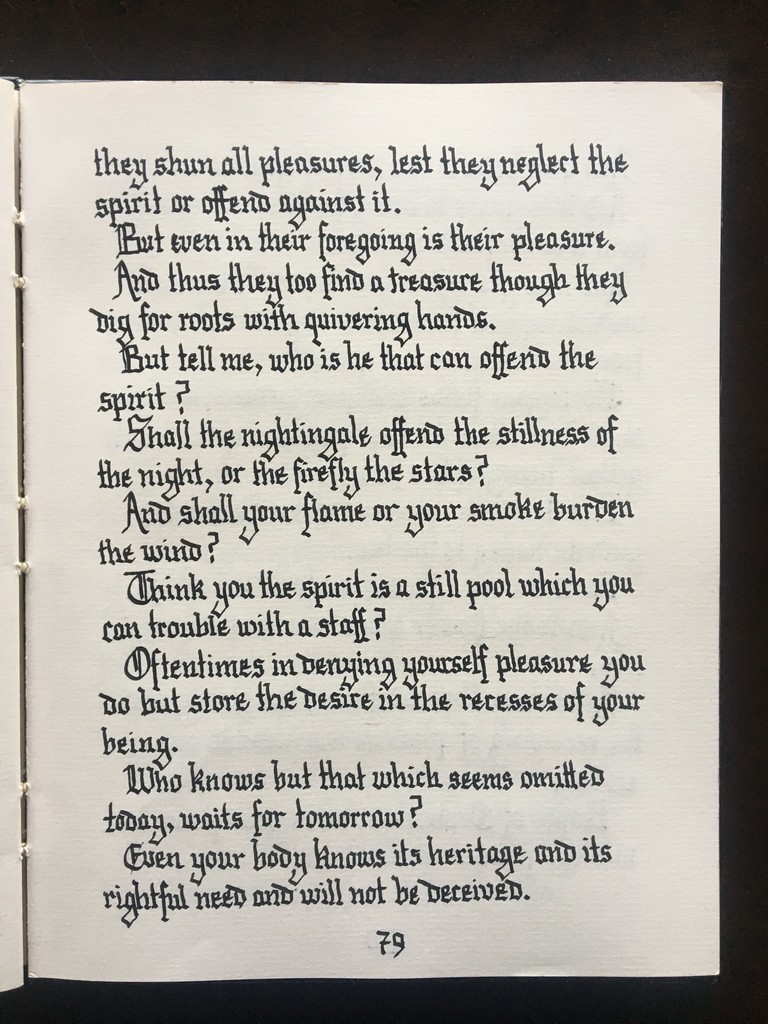 they shun all pleasures, lest they neglect the
spirit or offend against it.
But even in their foregoing is their pleasure.
And thus they too find a treasure though they
dig for roots with quivering hands.
But tell me, who is he that can offend the
spirit?
Shall the nightingale offend the stillness of
the night, or the firefly the stars?
And shall your flame or your smoke burden
the wind?
Think you the spirit is a still pool which you
can trouble with a staff?
Oftentimes in denying yourself pleasure you
do but store the desire in the recesses of your
being.
Who knows but that which seems omitted
today, waits for tomorrow?
Even your body knows its heritage and its
rightful need and will not be deceived.
79